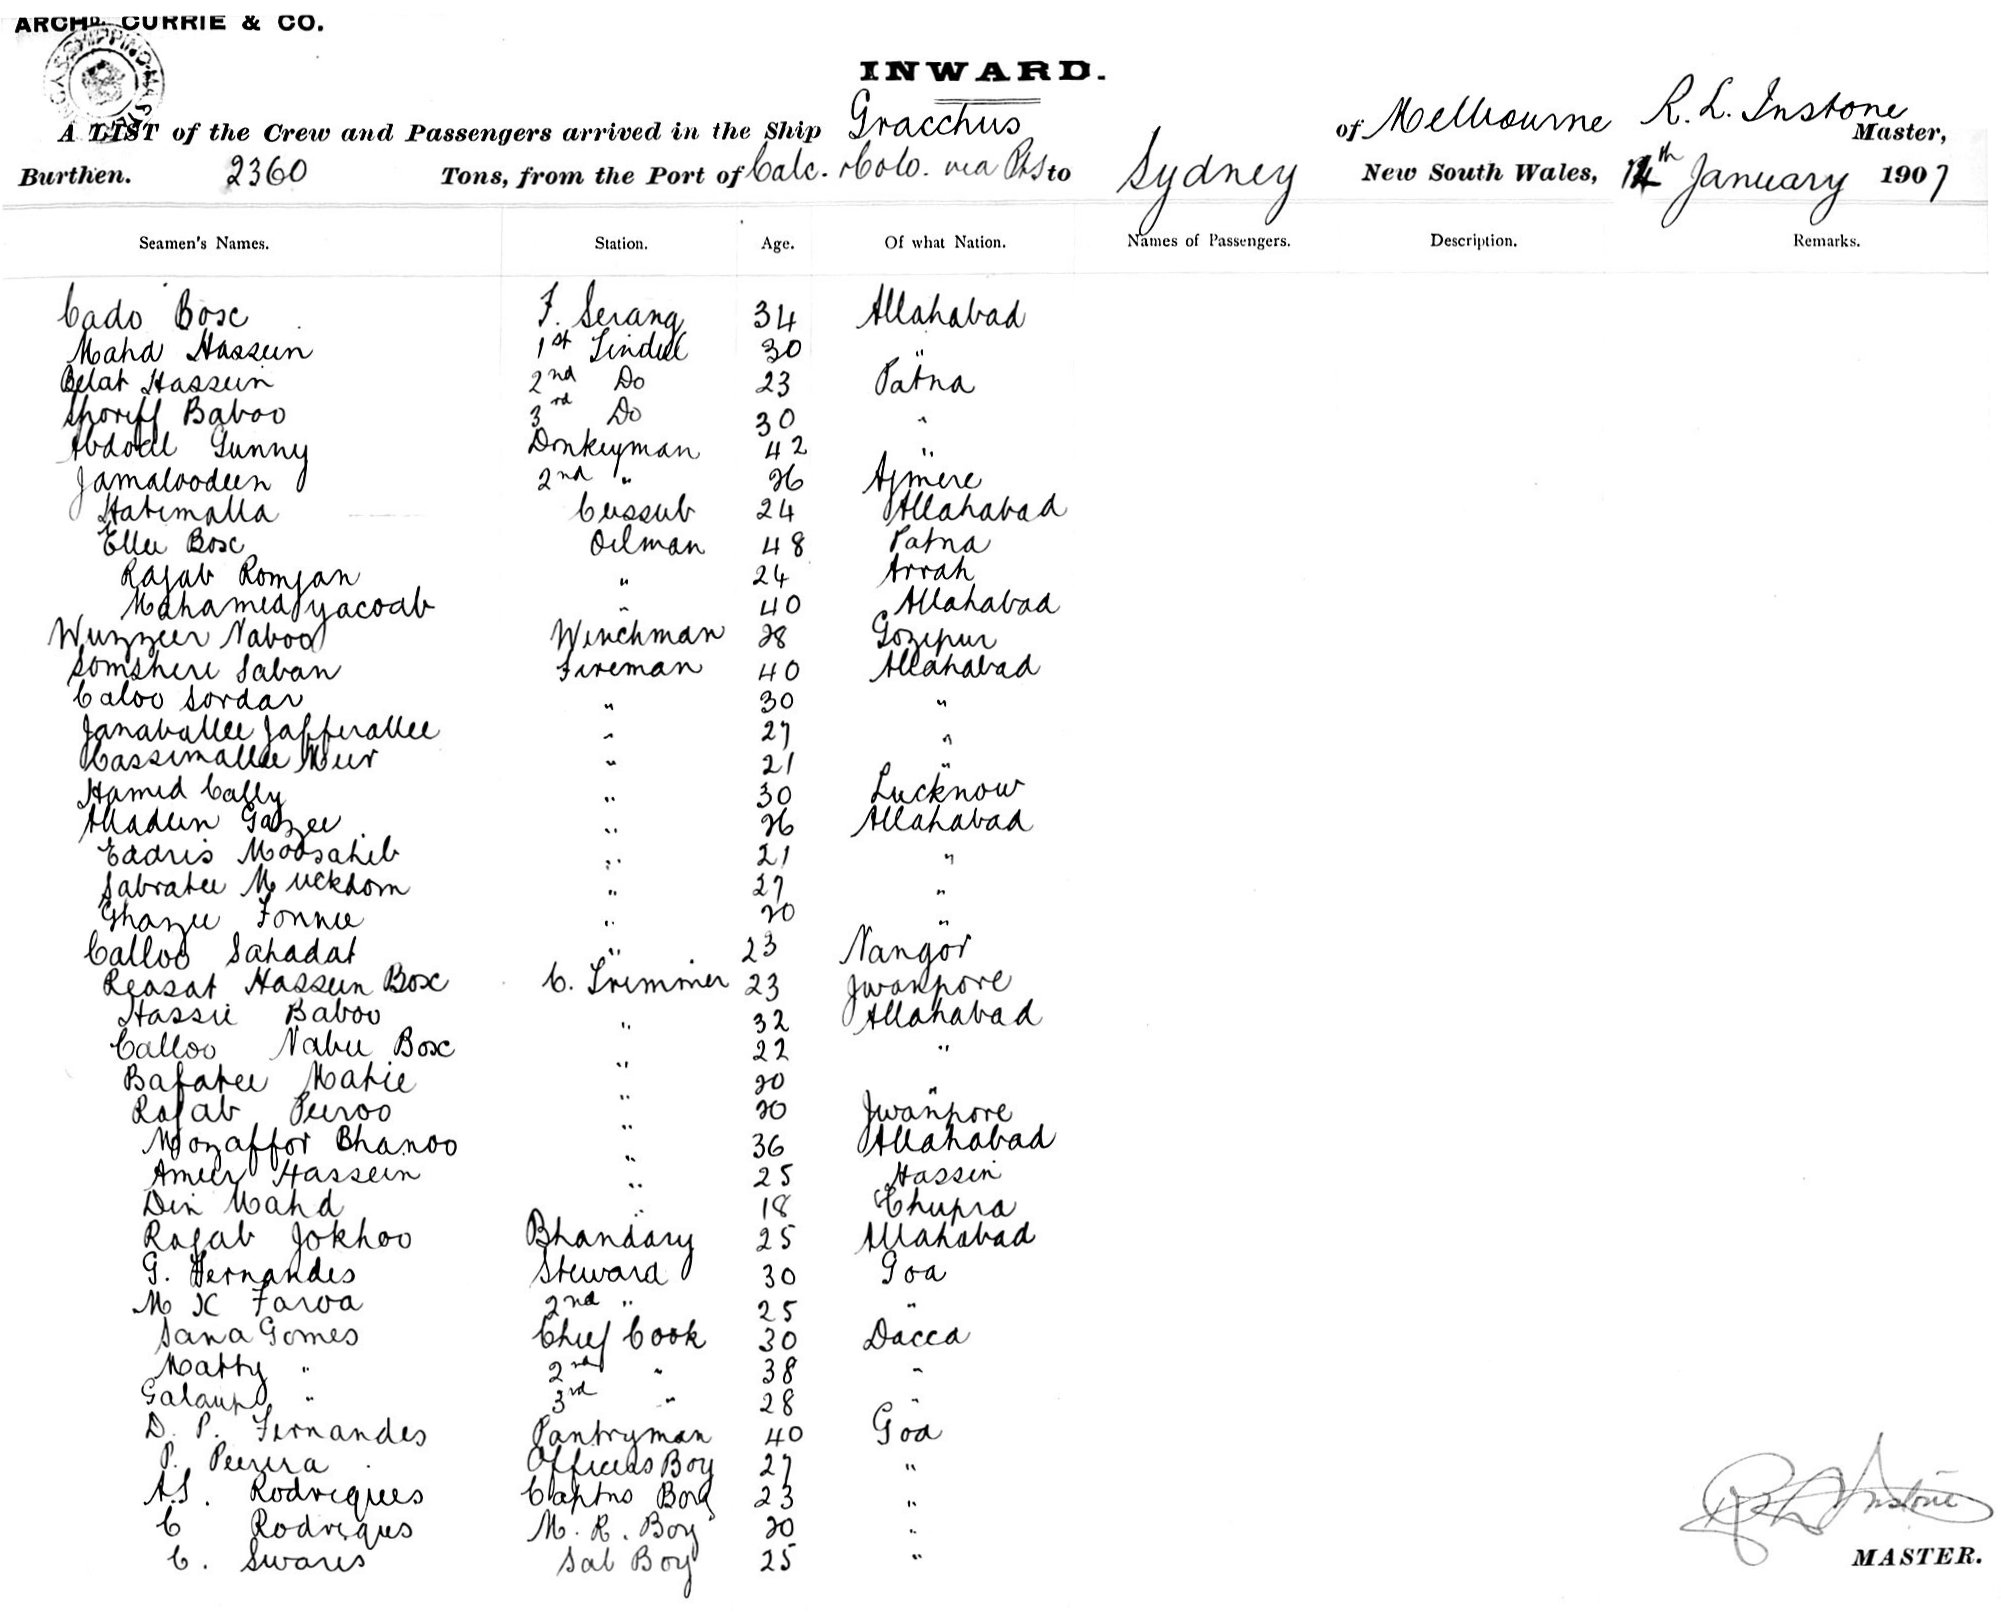 ARCHD. CURRIE & CO.
INWARD.
A LIST of the Crew and Passengers arrived in the Ship Gracchus of Melbourne R. L. Instone Master,
Burthen. 2360 Tons, from the Port of Calc. Colo. via Pts to Sydney New South Wales, 14th January 1907
Seamen's Names. Station. Age. Of what Nation. Names of Passengers. Description. Remarks.
Cado Bosc F. Serang 34 Allahabad
Mahd Hassein 1st Tindal 30 "
Belat Hassein 2nd Do 23 Patna
Shoriff Baboo 3rd Do 30 "
Abdool Gunny Donkeyman 42 "
Jamaloodeen 2nd " 26 Ajmere
Hatimalla Cussub 24 Allahabad
Ellee Bosc Oilman 48 Patna
Rajab Romjan " 24 Arrah
Mahamed yacoob " 40 Allahabad
Wuzzeer Naboo Winchman 28 Gozipur
Somshere Saban Fireman 40 Allahabad
Caloo Sordar " 30 "
Janaballee Jafferallee " 27 "
Cassimallee Meer " 21 "
Hamid Cally " 30 Lucknow
Alladeen Gazee " 26 Allahabad
Eadris Moosahib " 21 "
Sabratee Muckdom " 27 "
Ghazee Fonnee " 20 "
Calloo Sahadat " 23 Nangor
Reasat Hassein Box C. Trimmer 23 Jwanpore
Hassie Baboo " 32 Allahabad
Calloo Nabee Box " 22 "
Bafatee Matie " 20 "
Rajab Peeroo " 20 Jwanpore
Mozaffor Bhanoo " 36 Allahabad
Ameer Hassein " 25 Hassin
Din Mahd " 18 Chupra
Rajab Jokhoo Bhandary 25 Allahabad
G. Hernandes Steward 30 Goa
M X Faroa 2nd " 25 "
Sana Gomes Chief Cook 30 Dacca
Matty " 2nd " 38 "
Galaup " 3rd " 28 "
D. P. Fernandes Pantryman 40 Goa
P. Peerera Officers Boy 27 "
A.S. Rodrigues Captns Boy 23 "
C Rodrigues M. R. Boy 20 "
C. Swares Sal Boy 25 "
R L Instone
MASTER.